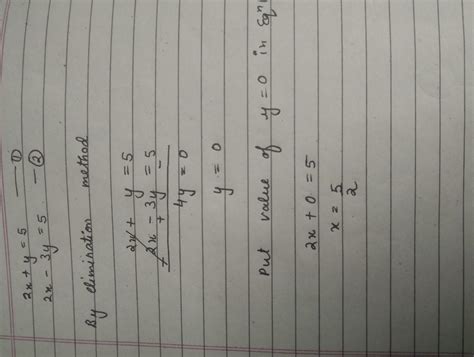 2x + y = 5 — ①
2x - 3y = 5 - ②
By elimination method
2x + y = 5
2x - 3y = 5
- + -
4y = 0
y = 0
Put value of y = 0 in Eqⁿ 1
2x + 0 = 5
x = 5/2